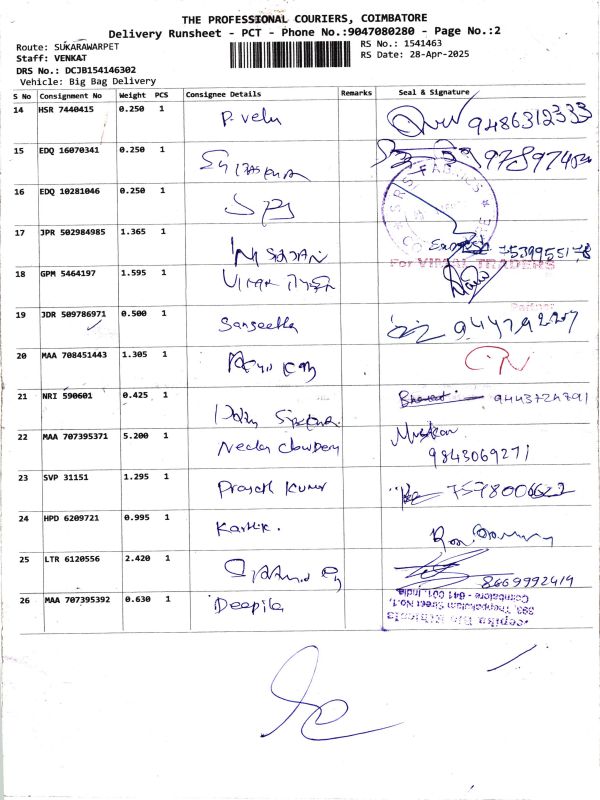 THE PROFESSIONAL COURIERS, COIMBATORE
Delivery Runsheet - PCT - Phone No.:9047080280 - Page No.:2
Route: SUKARAWARPET
RS No.: 1541463
Staff: VENKAT
RS Date: 28-Apr-2025
DRS No.: DCJB154146302
Vehicle: Big Bag Delivery
S No Consignment No Weight PCS Consignee Details Remarks Seal & Signature
14 HSR 7440415 0.250 1 P. Velu 9486312333
15 EDQ 16070341 0.250 1
16 EDQ 10281046 0.250 1 SPJ
17 JPR 502984985 1.365 1
For VIMAL TRADERS
18 GPM 5464197 1.595 1
19 JDR 509786971 0.500 1 Sangeetha
20 MAA 708451443 1.305 1
21 NRI 590601 0.425 1 Bharat 9443724791
22 MAA 707395371 5.200 1 Neeta Chowdery Muskan
9843069271
23 SVP 31151 1.295 1 Prasath Kumar
24 HPD 6209721 0.995 1 Karthik.
25 LTR 6120556 2.420 1 8669992414
26 MAA 707395392 0.630 1 Deepika
393, Theppakulam Street No.1,
Coimbatore - 641 001. India.